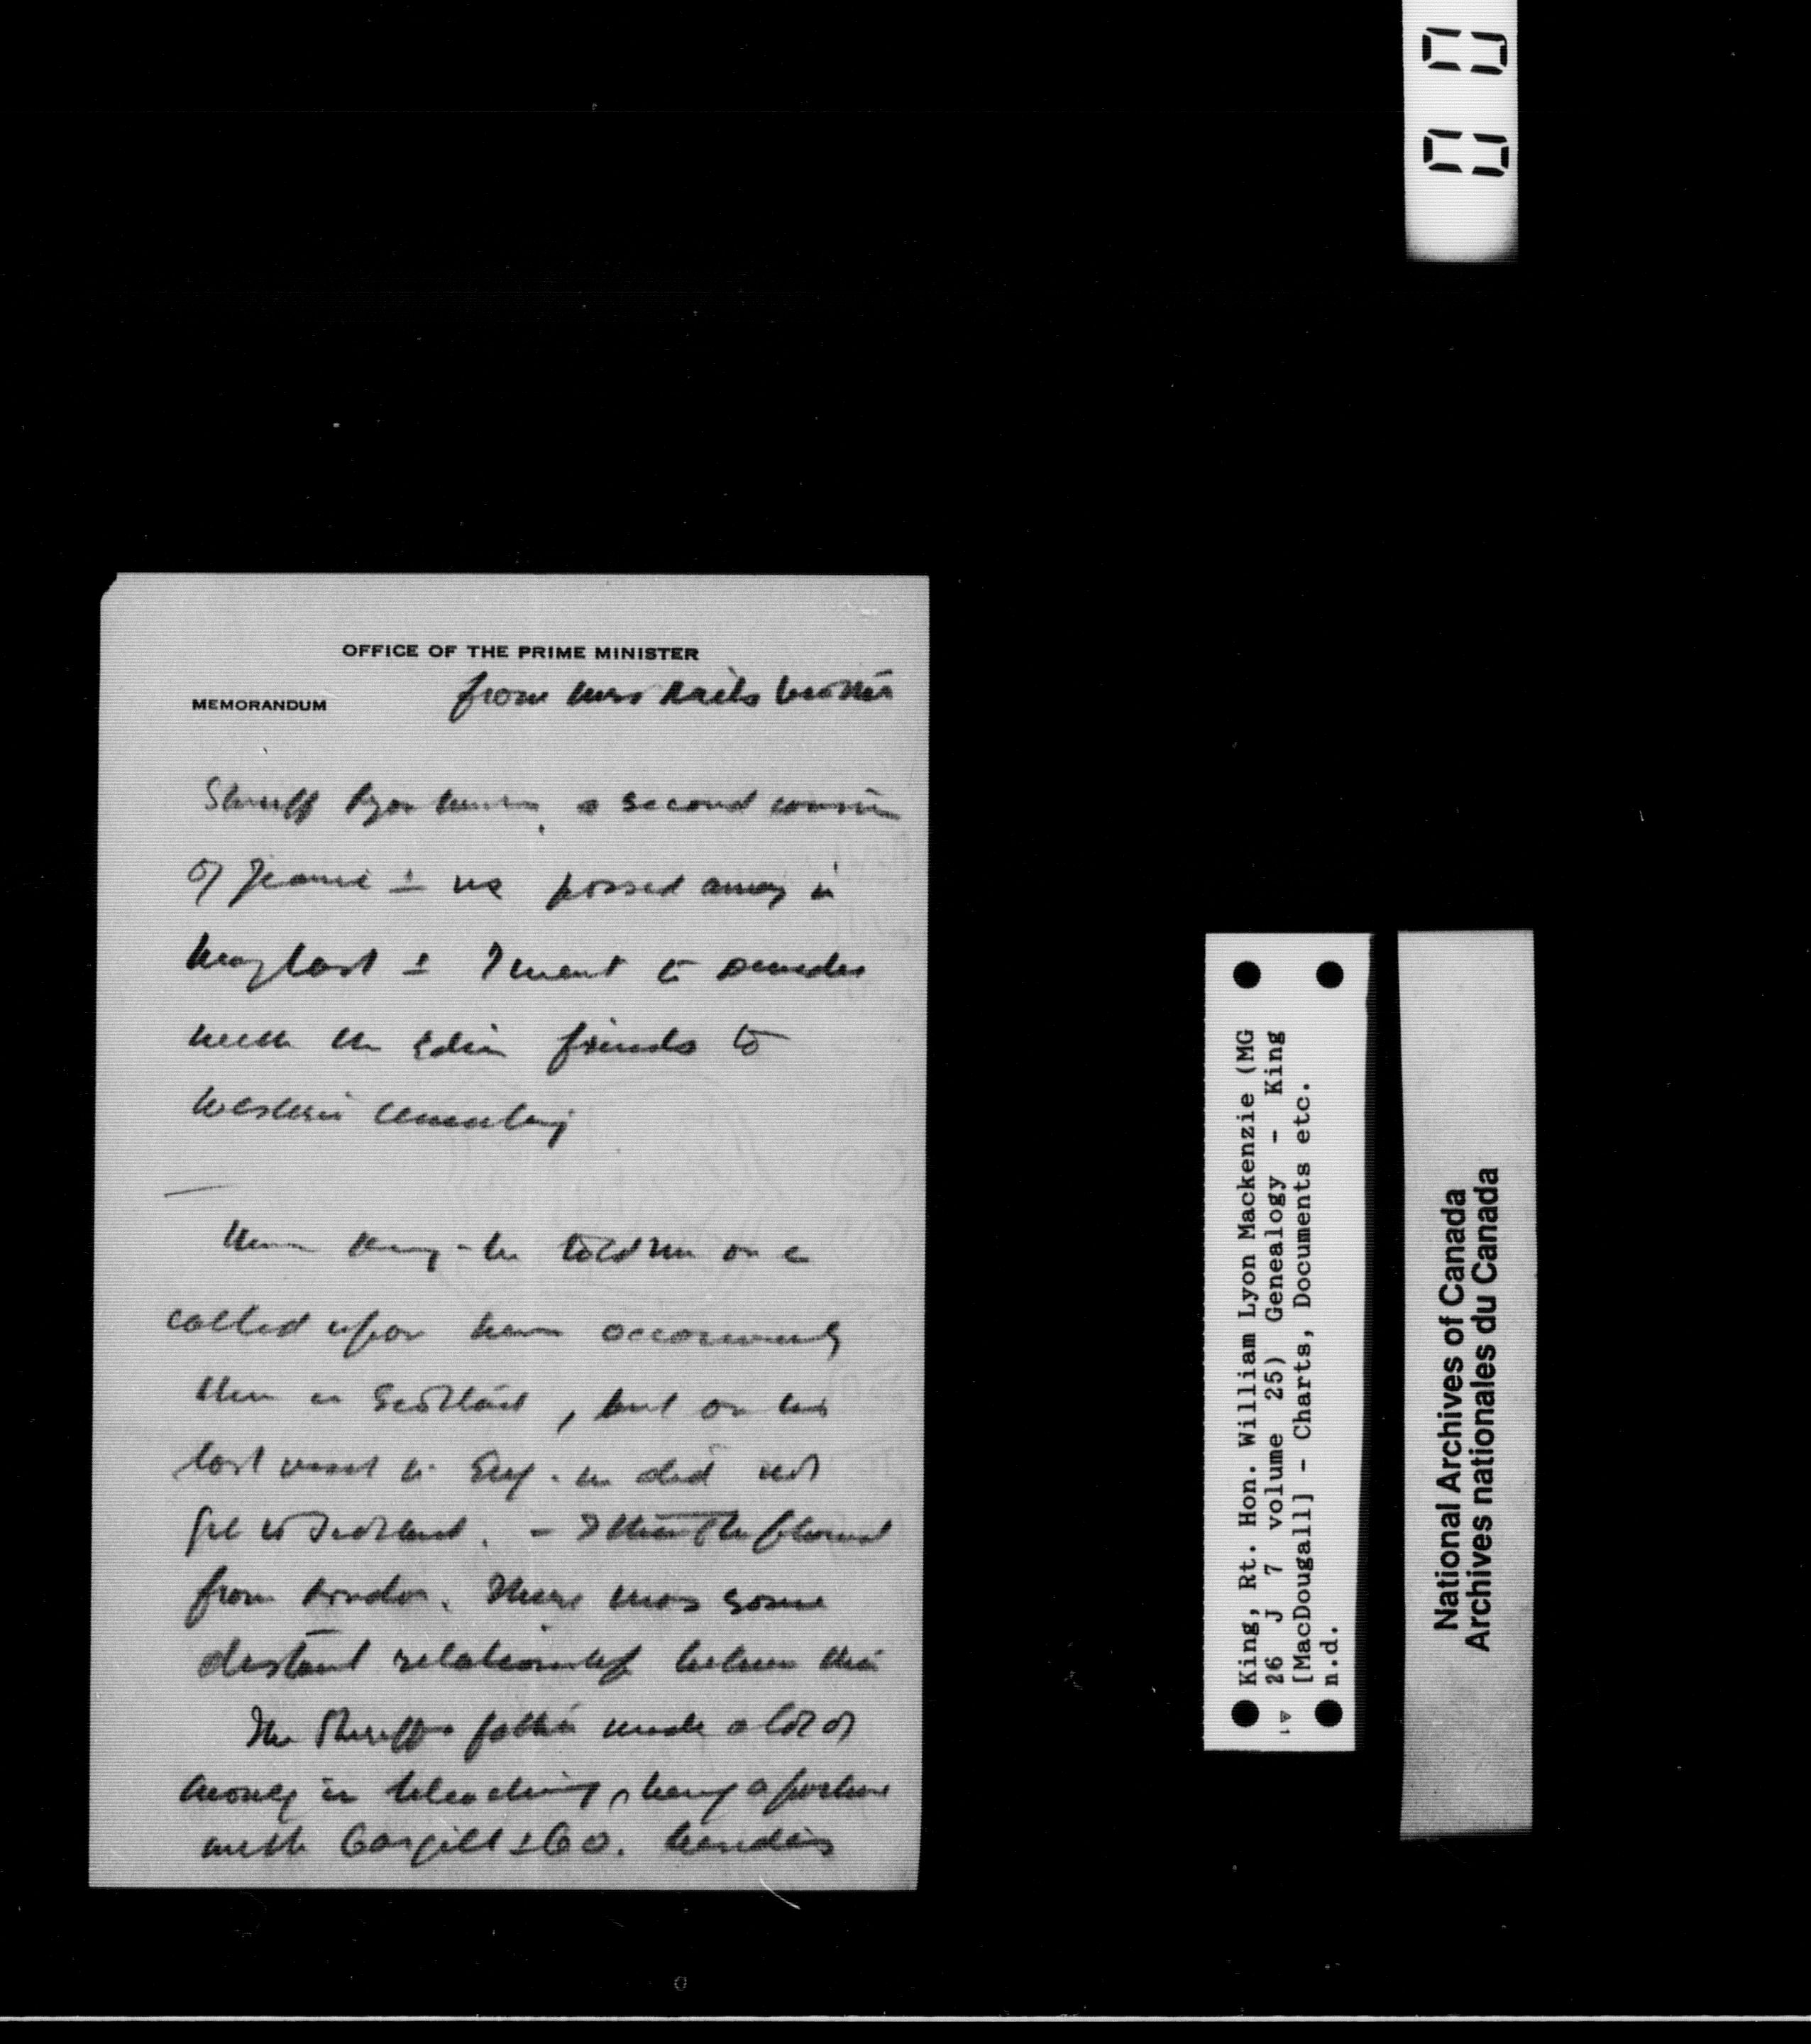 OFFICE OF THE PRIME MINISTER
MEMORANDUM
from Mrs brother
Sheriff Lyon a second cousin
of Jeannie & me passed away in
May last & I went to Dundee
with the Edin friends to
Western Cemetery
King - he told me once
called upon him occasionally
when in Scotland, but on his
last visit to Eng. he did not
get to Scotland. - I think he phoned
from London. There was some
distant relationship between them
The Sheriff's father made a lot of
money in bleaching, being a partner
with Cargill & Co. Dundee
King, Rt. Hon. William Lyon Mackenzie (MG
26 J 7 volume 25) Genealogy - King
[MacDougall] - Charts, Documents etc.
n.d.
National Archives of Canada
Archives nationales du Canada